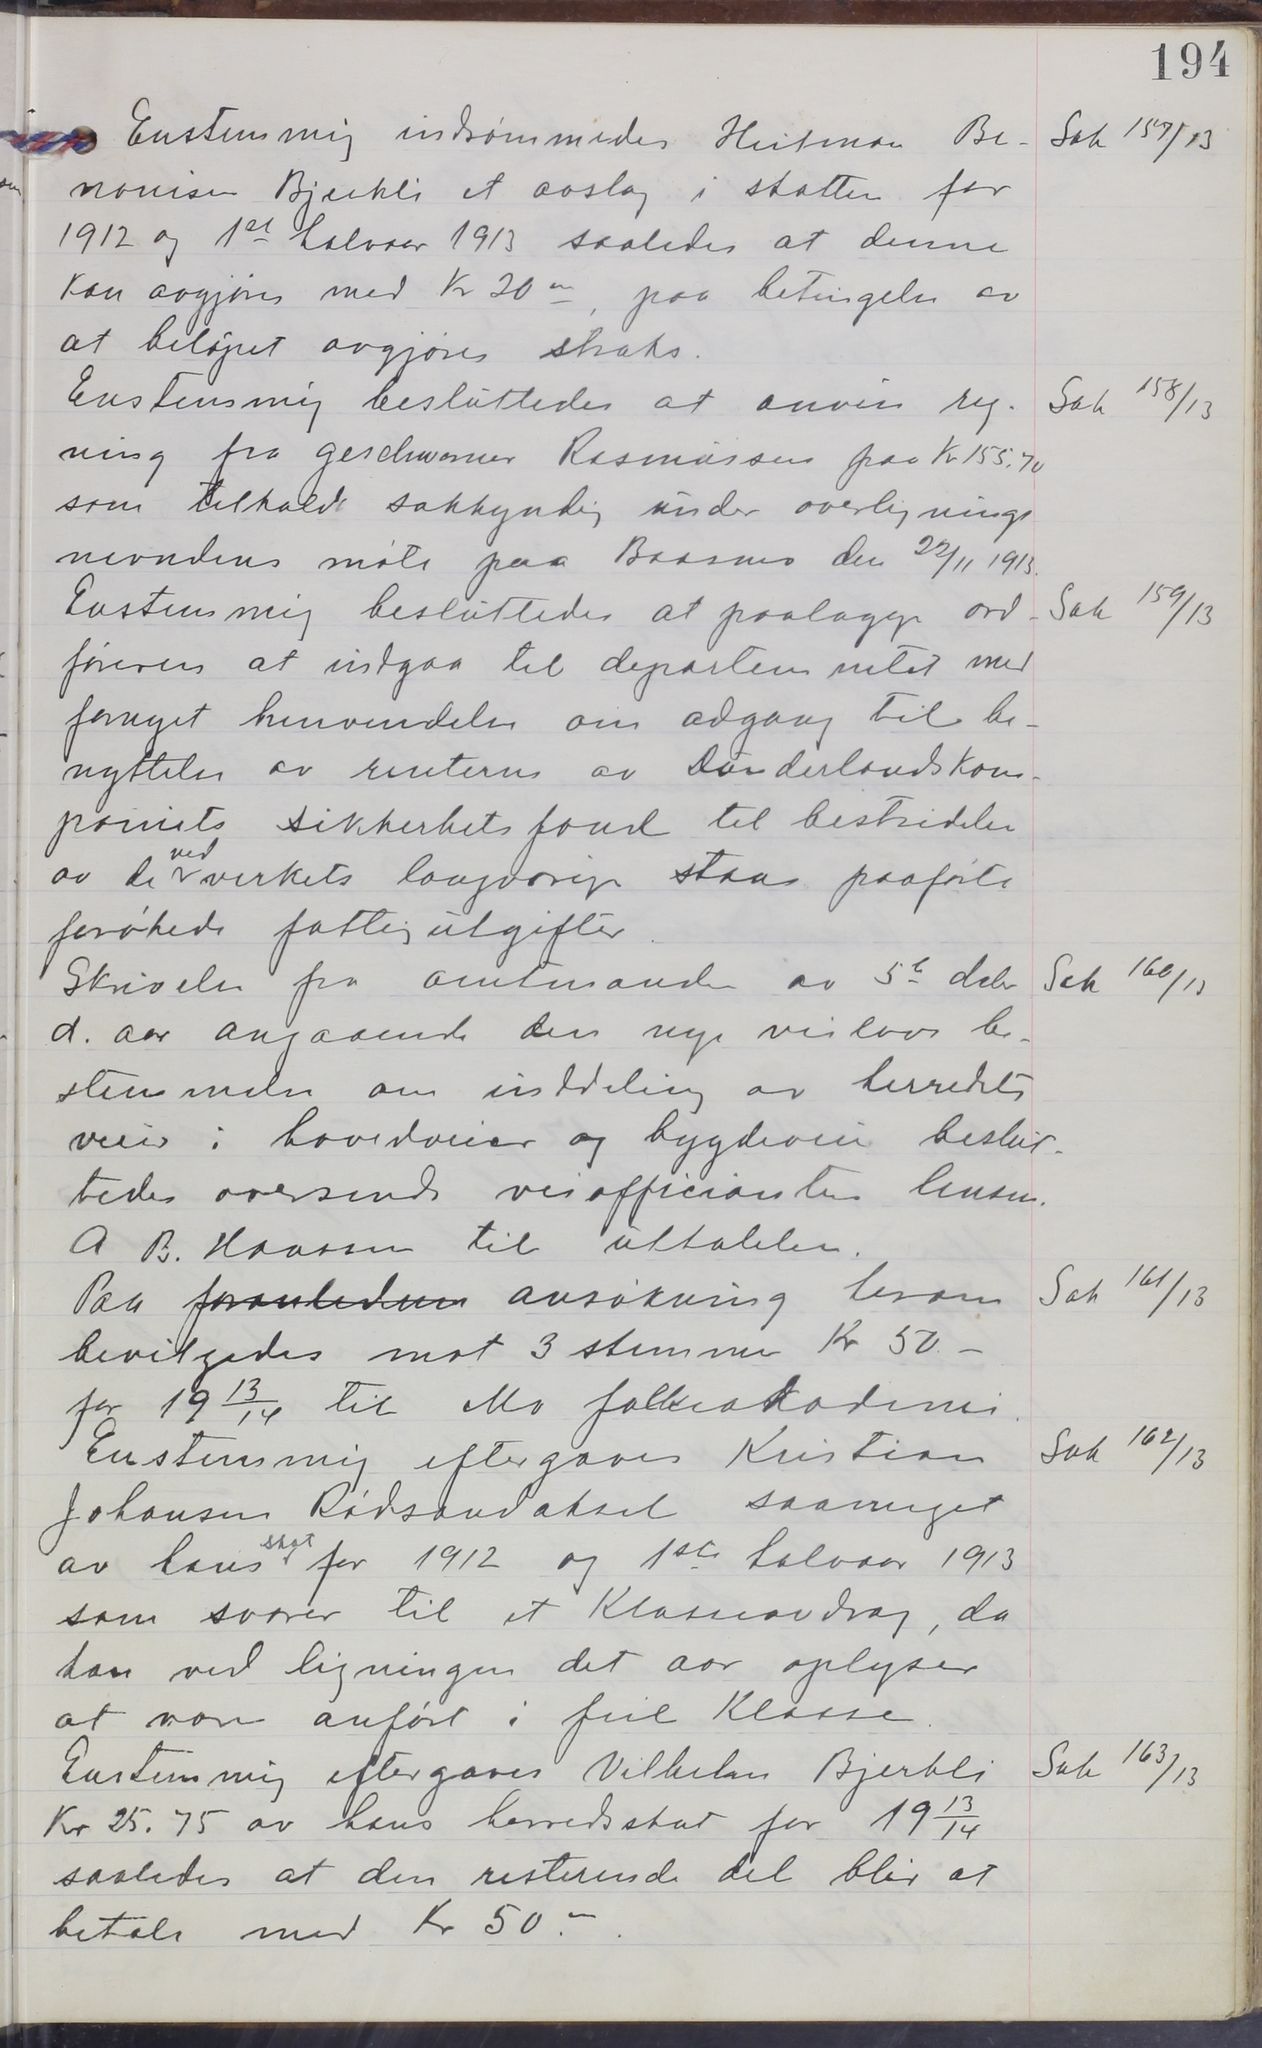 194
Enstemmig indrømmedes Heitman Be- Sak 157/13
nonisen Bjerkli et avslag i skatten for
1912 og 1st halvaar 1913 saaledes at denne
kan avgjøres med Kr 20 -, paa betingelse av
at beløpet avgjøres straks.
Enstemmig besluttedes at anvise reg- Sak 158/13
ning fra geschworner Rasmussen paa Kr 155.70
som tilkaldt sakkyndig under overlignings
nevndens møte paa Baasmo den 22/11 1913.
Enstemmig besluttedes at paalægge ord- Sak 159/13
føreren at indgaa til departementet med
fornyet henvendelse om adgang til be-
nyttelse av renterne av Dunderlandskom-
paniets sikkerhetsfond til bestridelse
av de ved verkets langvarige stans paaførte
forøkede fattigutgifter.
Skrivelse fra amtmanden av 5te dsbr Sak 160/13
d. aar angaaende den nye veilovs be-
stemmelse om inddeling av herredets
veier i hovedveier og bygdeveie beslut-
tedes oversendt veiofficianten lensm.
A B. Hanssen til uttalelse.
Paa foranledning ansøkning herom Sak 161/13
bevilgedes mot 3 stemmer Kr 50.-
for 19 13/14 til Mo folkeakademi.
Enstemmig eftergaves Kristian Sak 162/13
Johansen Rødsandaksel saameget
av hans skat for 1912 og 1ste halvaar 1913
som svarer til et Klasseavdrag, da
han ved ligningen det aar oplyses
at være anført i feil Klasse.
Enstemmig eftergaves Vilhelm Bjerkli Sak 163/13
Kr 25.75 av hans herredsskat for 19 13/14
saaledes at den resterende del blir at
betale med Kr 50.-.